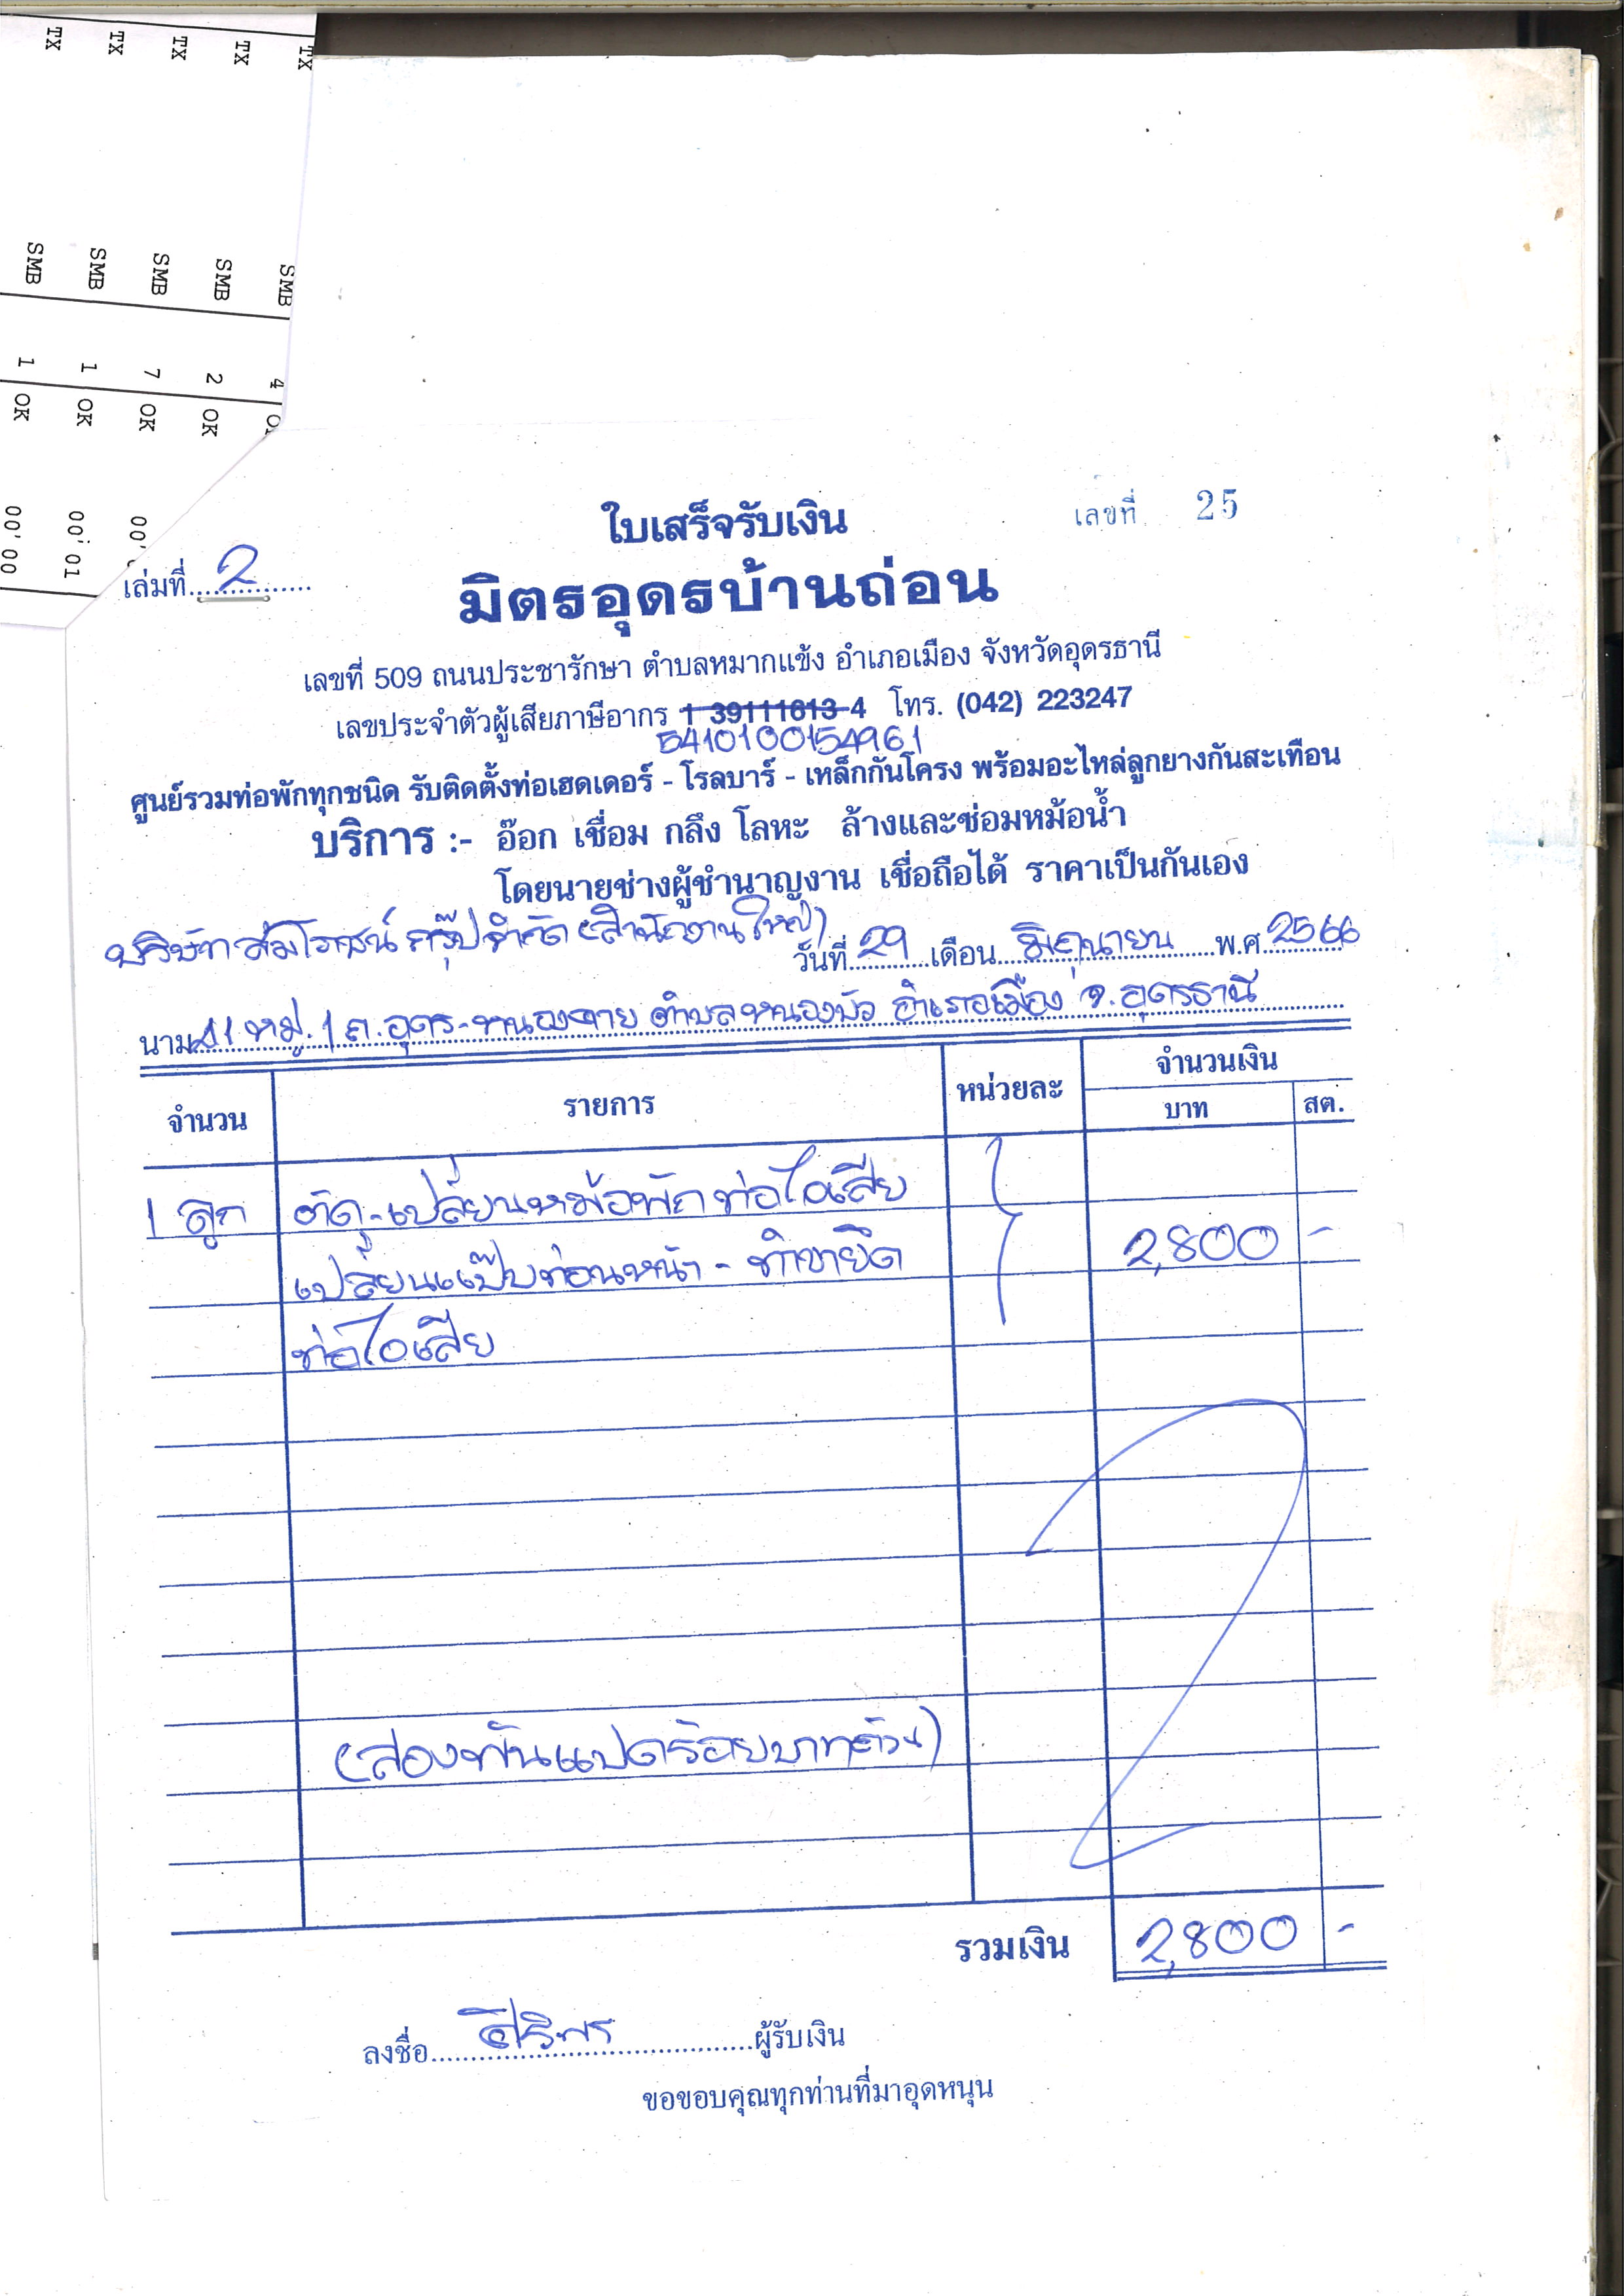 TX TX TX TX TX
SMB SMB SMB SMB SMB
1 1 7 2 4
OK OK OK OK
00'00 00'01 00'
ใบเสร็จรับเงิน
เลขที่ 25
เล่มที่ 2
มิตรอุดรบ้านถ่อน
เลขที่ 509 ถนนประชารักษา ตำบลหมากแข้ง อำเภอเมือง จังหวัดอุดรธานี
เลขประจำตัวผู้เสียภาษีอากร 1 39111613 4 โทร. (042) 223247
5410100154961
ศูนย์รวมท่อพักทุกชนิด รับติดตั้งท่อเฮดเดอร์ - โรลบาร์ - เหล็กกันโครง พร้อมอะไหล่ลูกยางกันสะเทือน
บริการ :- อ๊อก เชื่อม กลึง โลหะ ล้างและซ่อมหม้อน้ำ
โดยนายช่างผู้ชำนาญงาน เชื่อถือได้ ราคาเป็นกันเอง
บริษัท กรุ๊ป จำกัด (สำนักงานใหญ่)
วันที่ 29 เดือน มิถุนายน พ.ศ. 2566
นาม 11 หมู่.1 ถ.อุดร-หนองคาย ตำบลหนองบัว อำเภอเมือง จ.อุดรธานี
จำนวน รายการ หน่วยละ จำนวนเงิน
บาท สต.
1 ลูก ตัด-เปลี่ยนหม้อพักท่อไอเสีย
เปลี่ยนแป๊บท่อนหน้า - ทำขายึด 2,800 -
ท่อไอเสีย
(สองพันแปดร้อยบาทถ้วน)
รวมเงิน 2,800 -
ลงชื่อ ศิริพร ผู้รับเงิน
ขอขอบคุณทุกท่านที่มาอุดหนุน